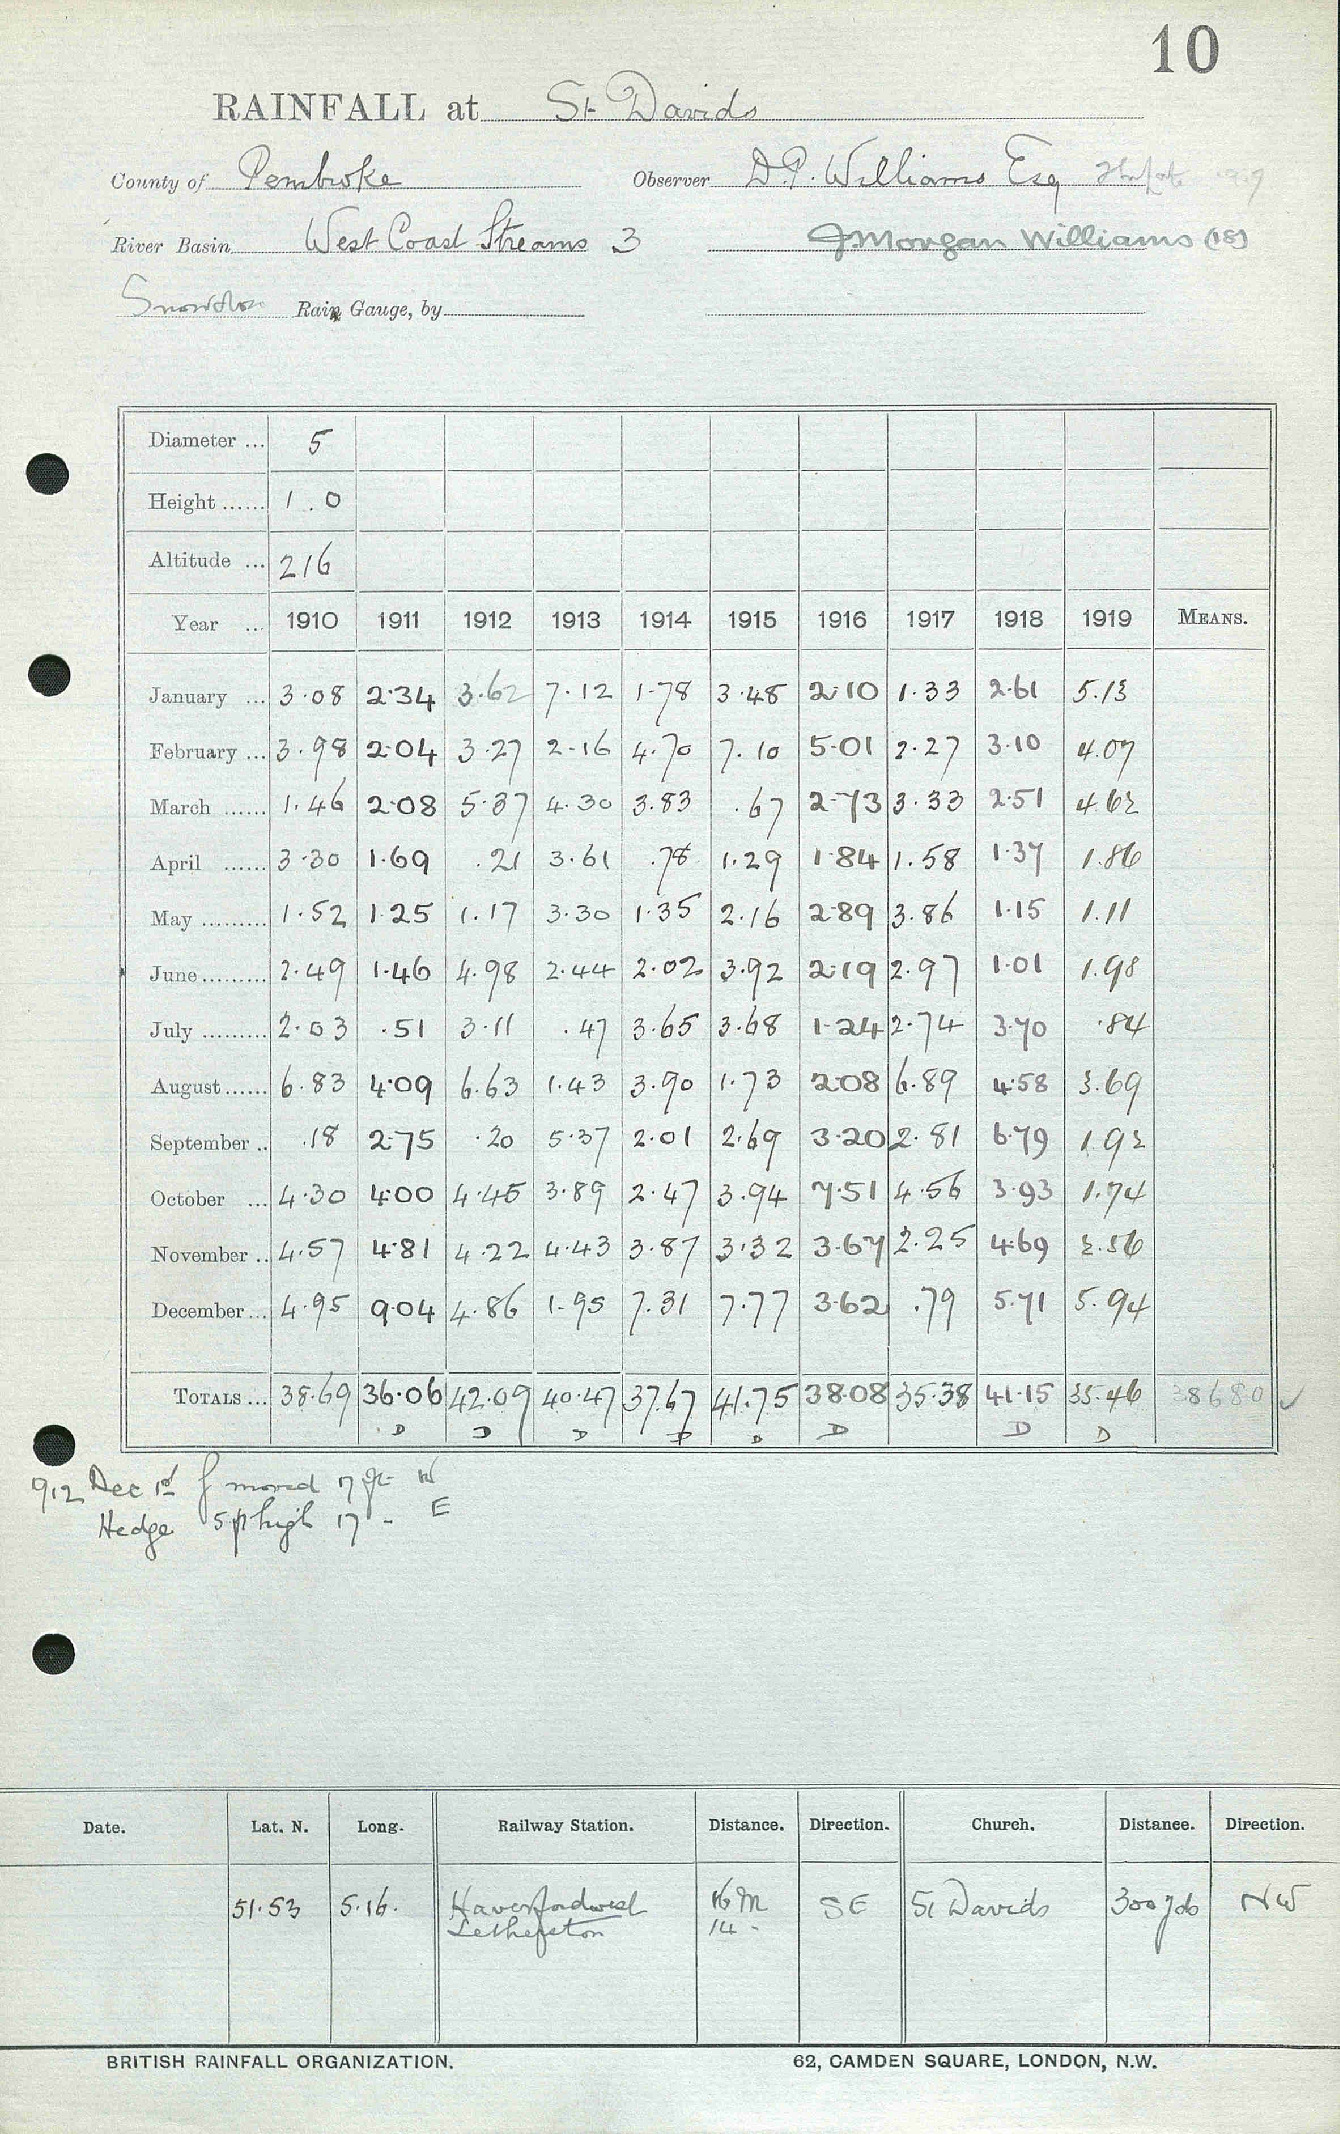 10
RAINFALL at St Davids
County of Pembroke Observer D.P. Williams Esq
River Basin West Coast Streams 3 J Morgan Williams (18)
Snowdon Rain Gauge, by
Diameter ... 5
Height ...... 1.0
Altitude ... 216
Year ... 1910 1911 1912 1913 1914 1915 1916 1917 1918 1919 MEANS.
January ... 3.08 2.34 3.62 7.12 1.78 3.48 2.10 1.33 2.61 5.13
February ... 3.98 2.04 3.27 2.16 4.70 7.10 5.01 2.27 3.10 4.07
March ...... 1.46 2.08 5.37 4.30 3.83 .67 2.73 3.33 2.51 4.62
April ...... 3.30 1.69 .21 3.61 .78 1.29 1.84 1.58 1.37 1.86
May ......... 1.52 1.25 1.17 3.30 1.35 2.16 2.89 3.86 1.15 1.11
June ......... 2.49 1.46 4.98 2.44 2.02 3.92 2.19 2.97 1.01 1.98
July ......... 2.03 .51 3.11 .47 3.65 3.68 1.24 2.74 3.70 .84
August ...... 6.83 4.09 6.63 1.43 3.90 1.73 2.08 6.89 4.58 3.69
September .. .18 2.75 .20 5.37 2.01 2.69 3.20 2.81 6.79 1.92
October ... 4.30 4.00 4.45 3.89 2.47 3.94 7.51 4.56 3.93 1.74
November .. 4.57 4.81 4.22 4.43 3.87 3.32 3.67 2.25 4.69 2.56
December ... 4.95 9.04 4.86 1.95 7.31 7.77 3.62 .79 5.71 5.94
TOTALS ... 38.69 36.06 42.09 40.47 37.67 41.75 38.08 35.38 41.15 35.46 38680 ✓
D D D D D D D D
912 Dec 1st moved 17 ft W
Hedge 5ft high 17 - E
Date. Lat. N. Long. Railway Station. Distance. Direction. Church. Distance. Direction.
51.53 5.16. Haverfordwest 16 M SE St Davids 300 yds NW
Letherston 14 -
BRITISH RAINFALL ORGANIZATION. 62, CAMDEN SQUARE, LONDON, N.W.